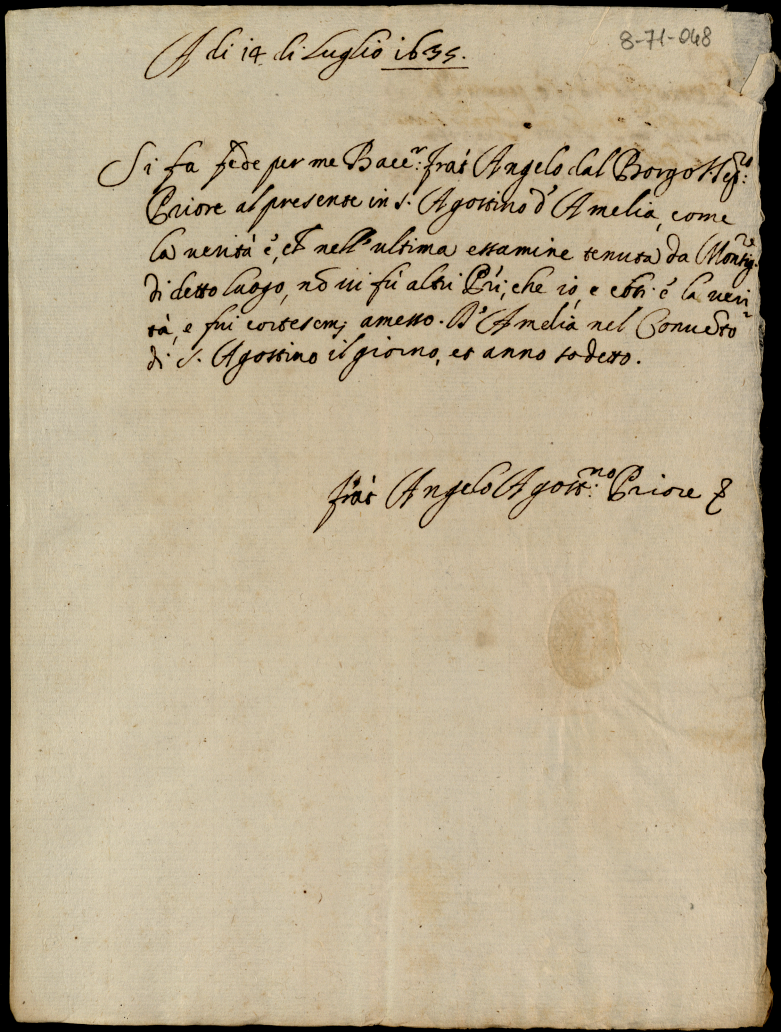 8-71-048
A di 14 di Luglio 1635.
Si fa fede per me Bacc.r frat' Angelo dal Borgo
Priore al presente in S. Agostino d'Amelia, come
la verità è, et nell'ultima essamine tenuta da Monsig.re
di detto luogo, nō vi fù altri che io, e è la veri
tà, e fui cortesem: amesso. D'Amelia nel Convēto
di S. Agostino il giorno, et anno sodetto.
frat' Angelo Agost.no Priore